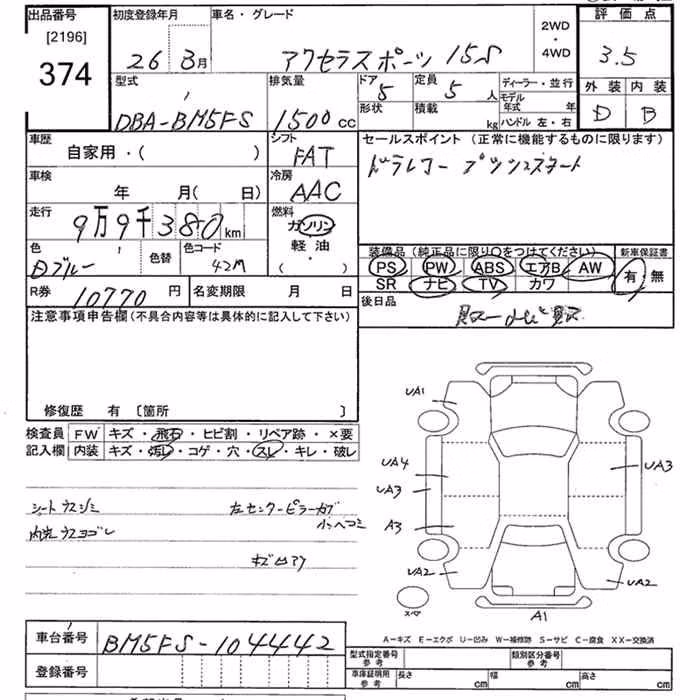 出品番号 初度登録年月 車名・グレード 2WD・4WD 評価点
[2196]
374
26 3月 アクセラスポーツ 15S 3.5
外装 内装
D B
型式 排気量 ドア 定員 ディーラー・並行
DBA-BM5FS 1500cc 5 5人 モデル年式 年
形状 積載 kg ハンドル 左・右
車歴 シフト セールスポイント (正常に機能するものに限ります)
自家用・( ) FAT
ドラレコー プッシュスタート
車検 冷房
年 月( 日) AAC
走行 燃料
9万9千380km ガソリン
軽油・( )
色 色替 色コード
Dブルー 42M
装備品(純正品に限り○をつけてください) 新車保証書
PS PW ABS エアB AW 有・無
SR ナビ TV カワ
R券 10770円 名変期限 月 日
後日品
注意事項申告欄(不具合内容等は具体的に記入して下さい)
修復歴 有 〔箇所 〕
検査員 FW キズ・飛石・ヒビ割・リペア跡・×要
記入欄 内装 キズ・汚レ・コゲ・穴・スレ・キレ・破レ
シートウスジミ 左センターピラーカブ
内装ウスヨゴレ 小ヘコミ
キズ凹アリ
UA1
UA4 UA3
UA3
A3
UA2 UA2
スペア A1
A-キズ E-エクボ U-凹み W-補修跡 S-サビ C-腐食 XX-交換済
車台番号 BM5FS-104442
登録番号
型式指定番号 参考 類別区分番号 参考
車庫証明用 参考 長さ cm 幅 cm 高さ cm